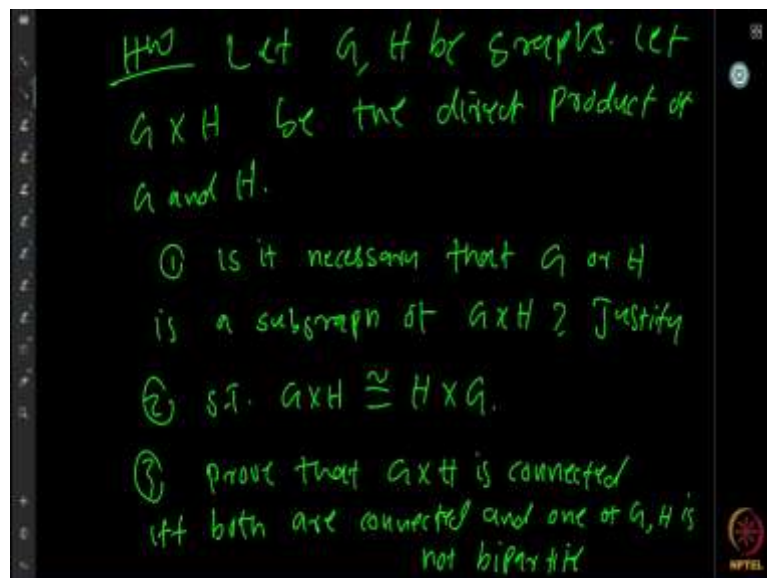 HW Let G, H be graphs. Let
G X H be the direct product of
G and H.
① is it necessary that G or H
is a subgraph of G x H ? Justify
② S.T. G x H ≅ H x G.
③ prove that G x H is connected
iff both are connected and one of G, H is
not bipartite
NPTEL